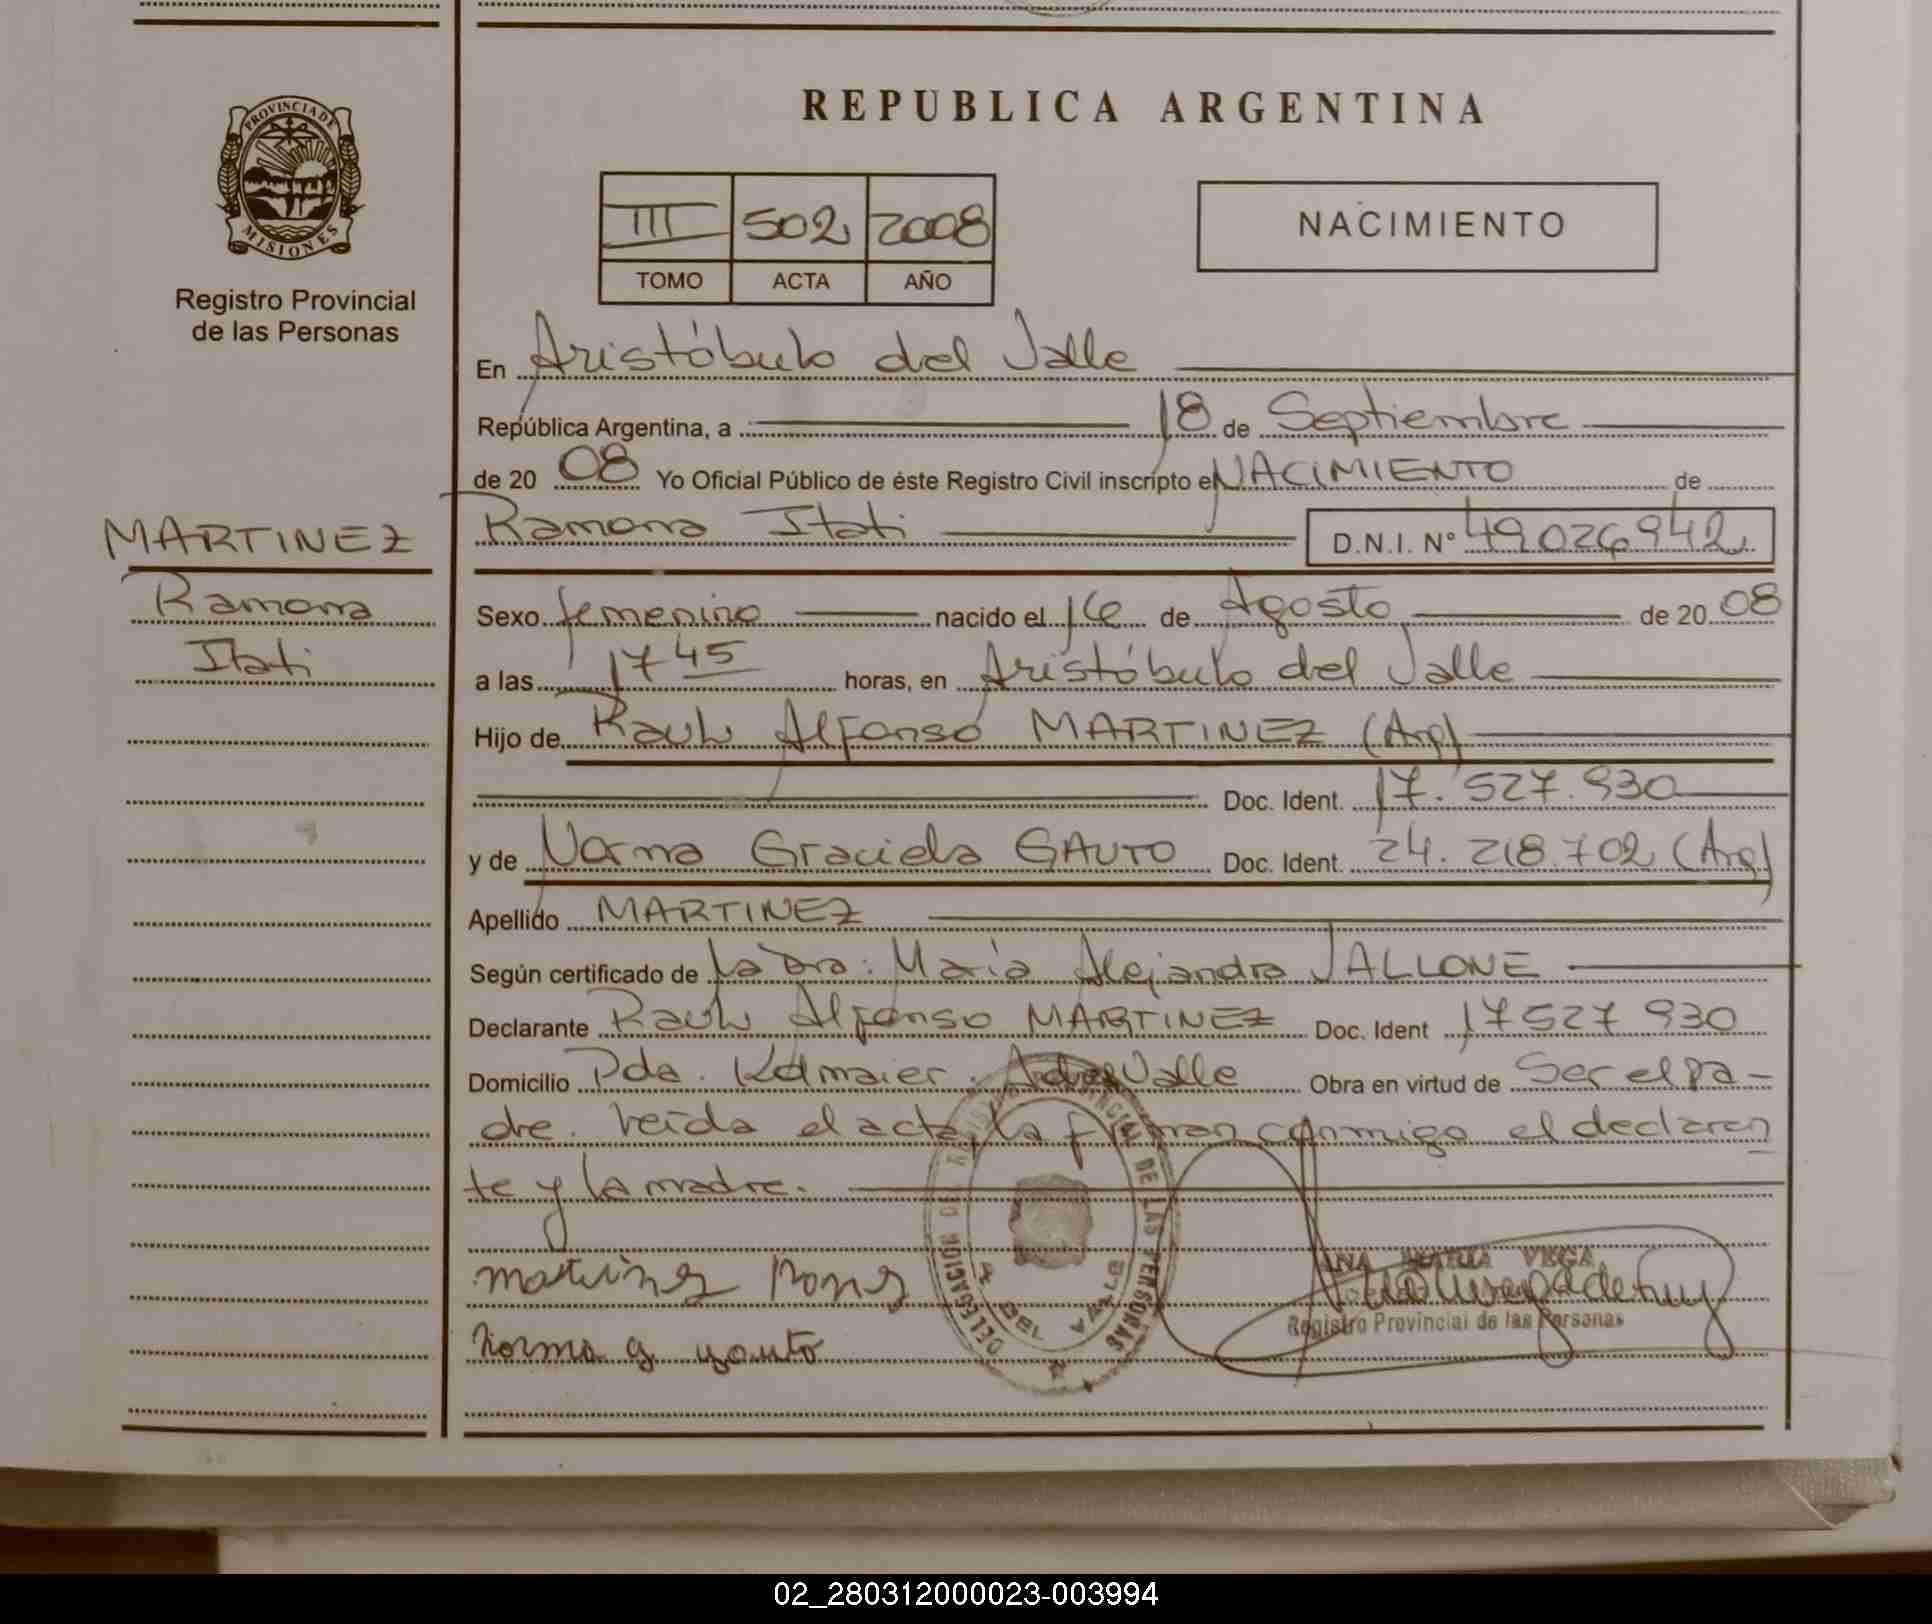 REPUBLICA ARGENTINA
PROVINCIA DE
MISIONES
Registro Provincial
de las Personas
III 502 2008
TOMO ACTA AÑO
NACIMIENTO
En Aristóbulo del Valle
República Argentina, a 18 de Septiembre
de 20 08 Yo Oficial Público de éste Registro Civil inscripto el NACIMIENTO de
MARTINEZ
Ramona
Itati
Ramona Itati D.N.I. N° 49.026.942
Sexo femenino nacido el 16 de Agosto de 20 08
a las 17 45 horas, en Aristóbulo del Valle
Hijo de Raul Alfonso MARTINEZ (Arg)
Doc. Ident. 17.527.930
y de Norma Graciela GAUTO Doc. Ident. 24.218.702 (Arg)
Apellido MARTINEZ
Según certificado de la Dra. María Alejandra VALLONE
Declarante Raul Alfonso MARTINEZ Doc. Ident 17 527 930
Domicilio Pda. Kolmaier. A del Valle Obra en virtud de Ser el pa-
dre. Leida el acta, la firman conmigo el declaran
te y la madre.
DELEGACION DEL REGISTRO PROVINCIAL DE LAS PERSONAS
A. DEL VALLE
martinez
norma g gauto
ANA MARIA VEGA
Registro Provincial de las Personas
02_280312000023-003994